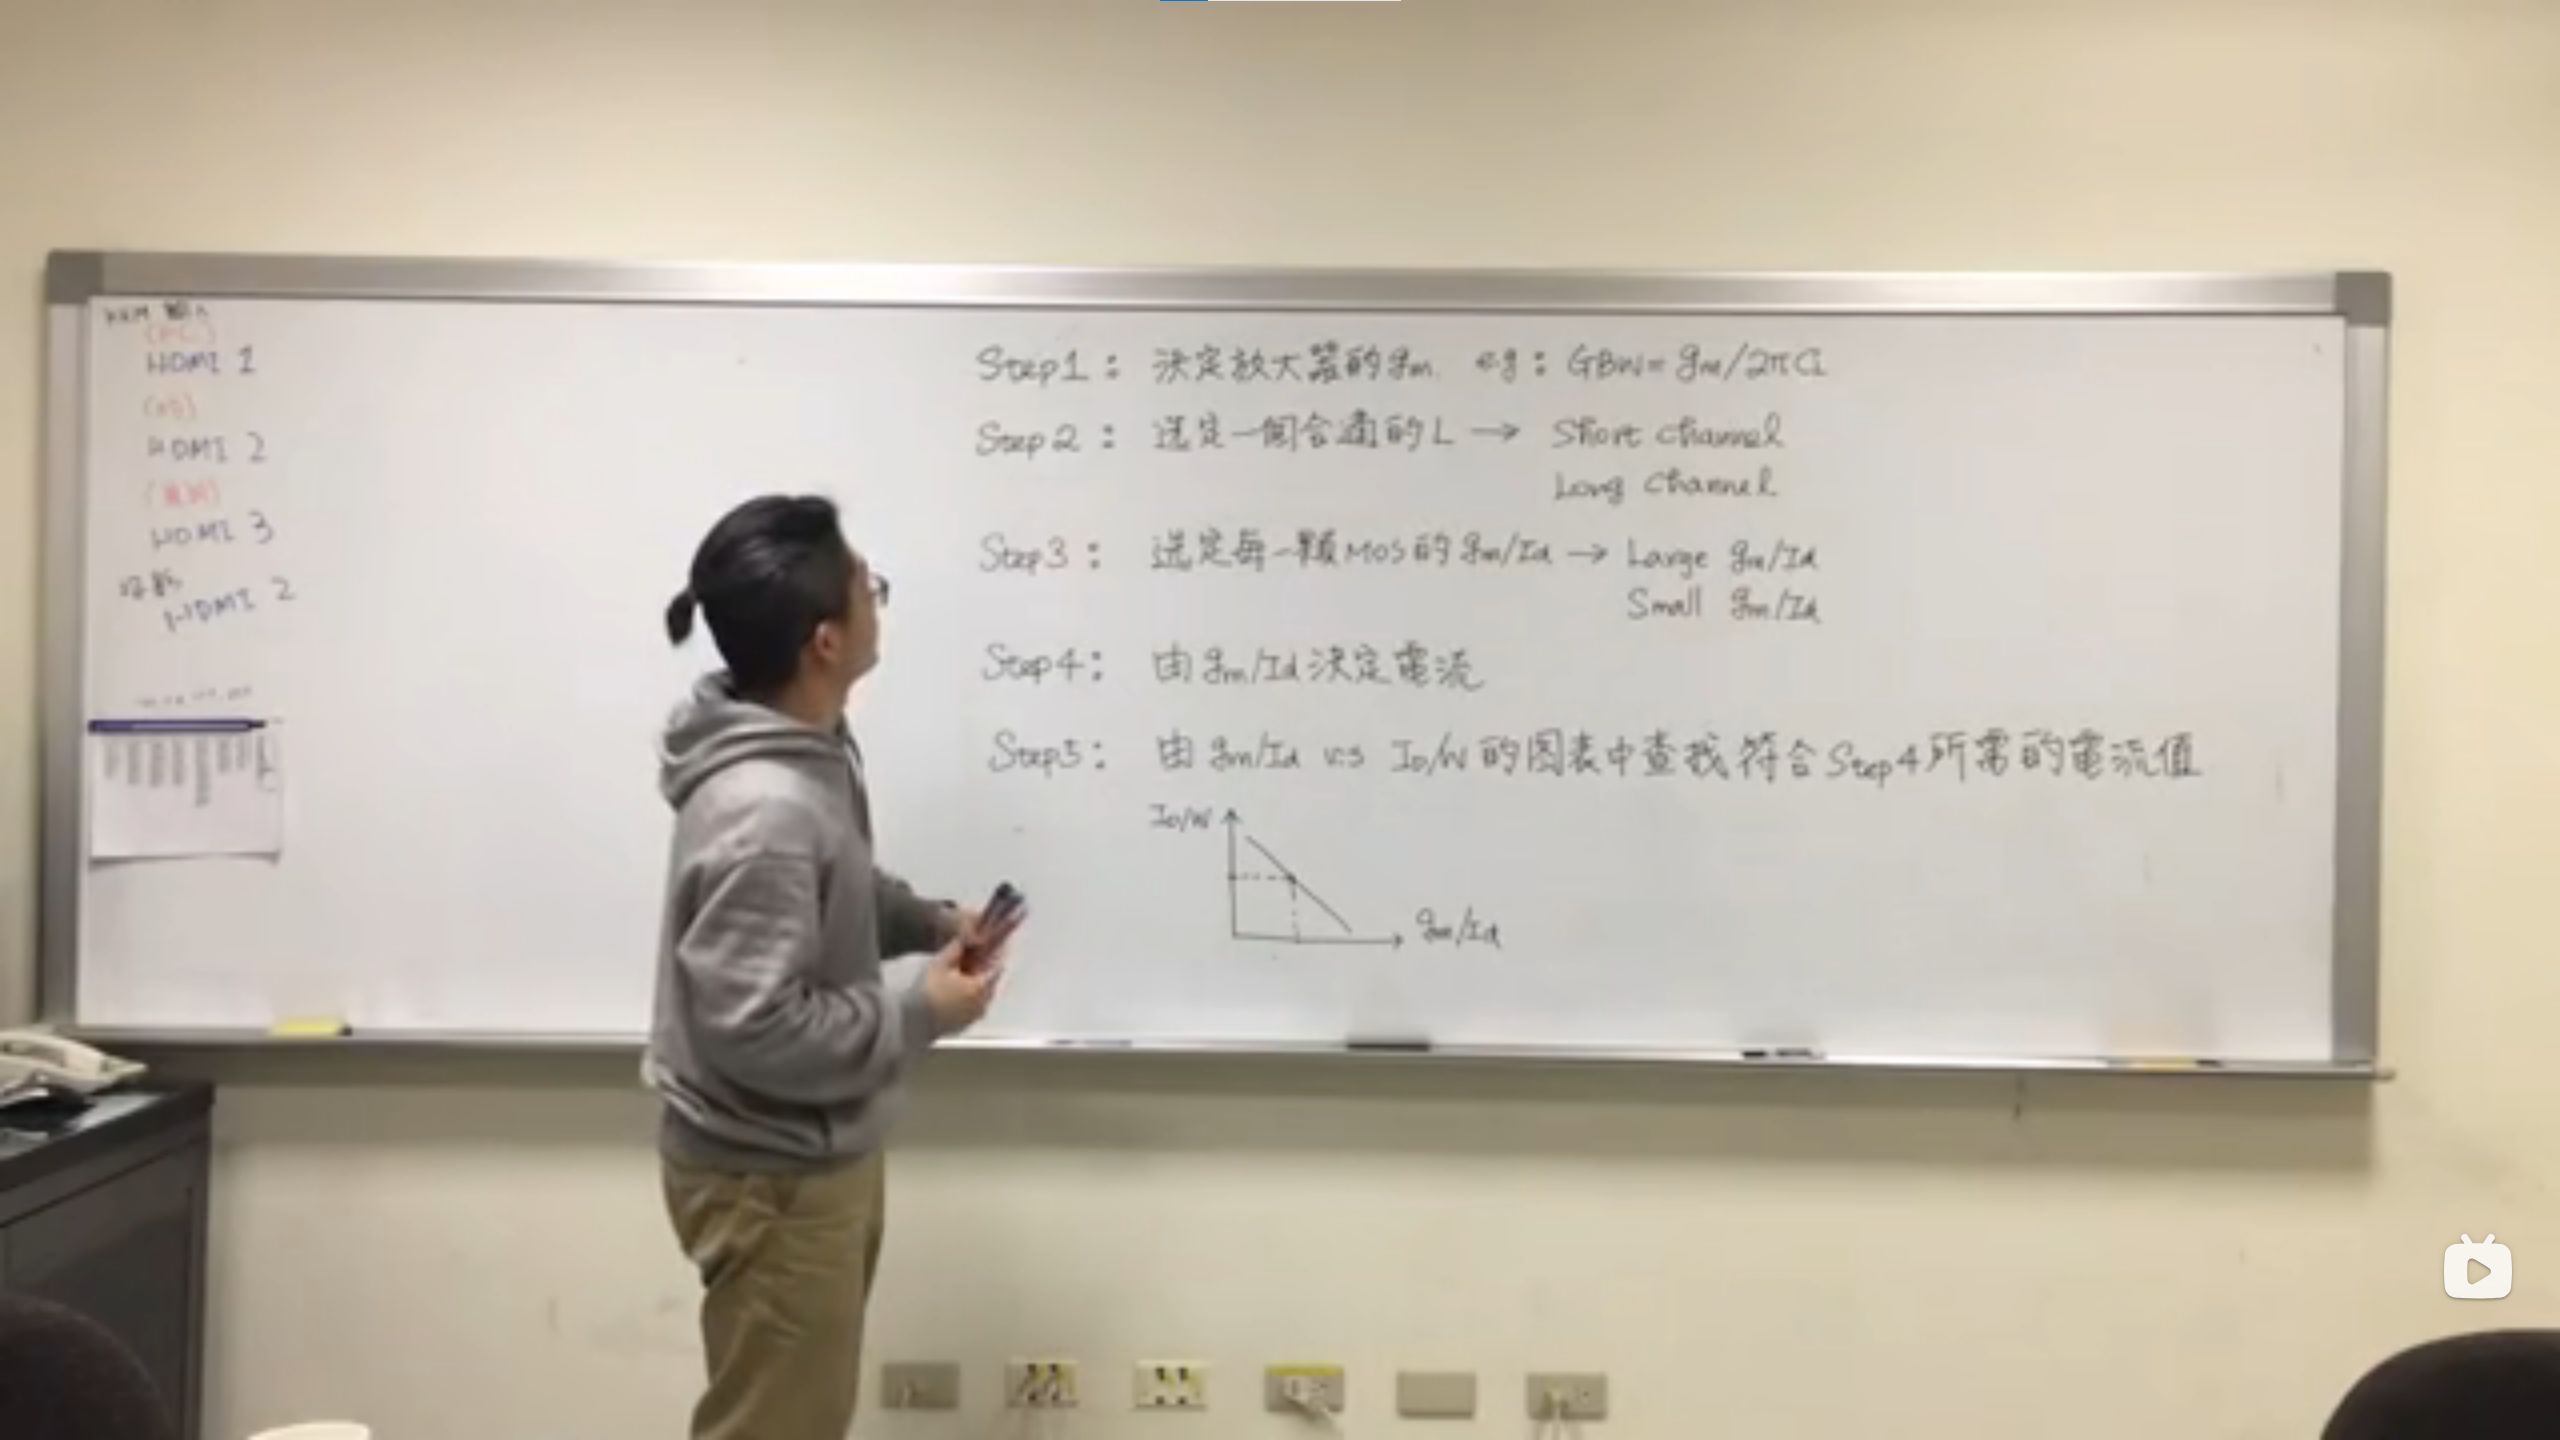 HDMI 1
HDMI 2
HDMI 3
HDMI 2
Step1： 決定放大器的gm. eg： GBW= gm/2πCL
Step2： 选定一個合適的L → Short channel
Long channel
Step3： 选定每一顆MOS的gm/Id → Large gm/Id
Small gm/Id
Step4： 由gm/Id決定電流
Step5： 由 gm/Id vs ID/W的图表中查找符合Step4所需的電流值
ID/W
gm/Id